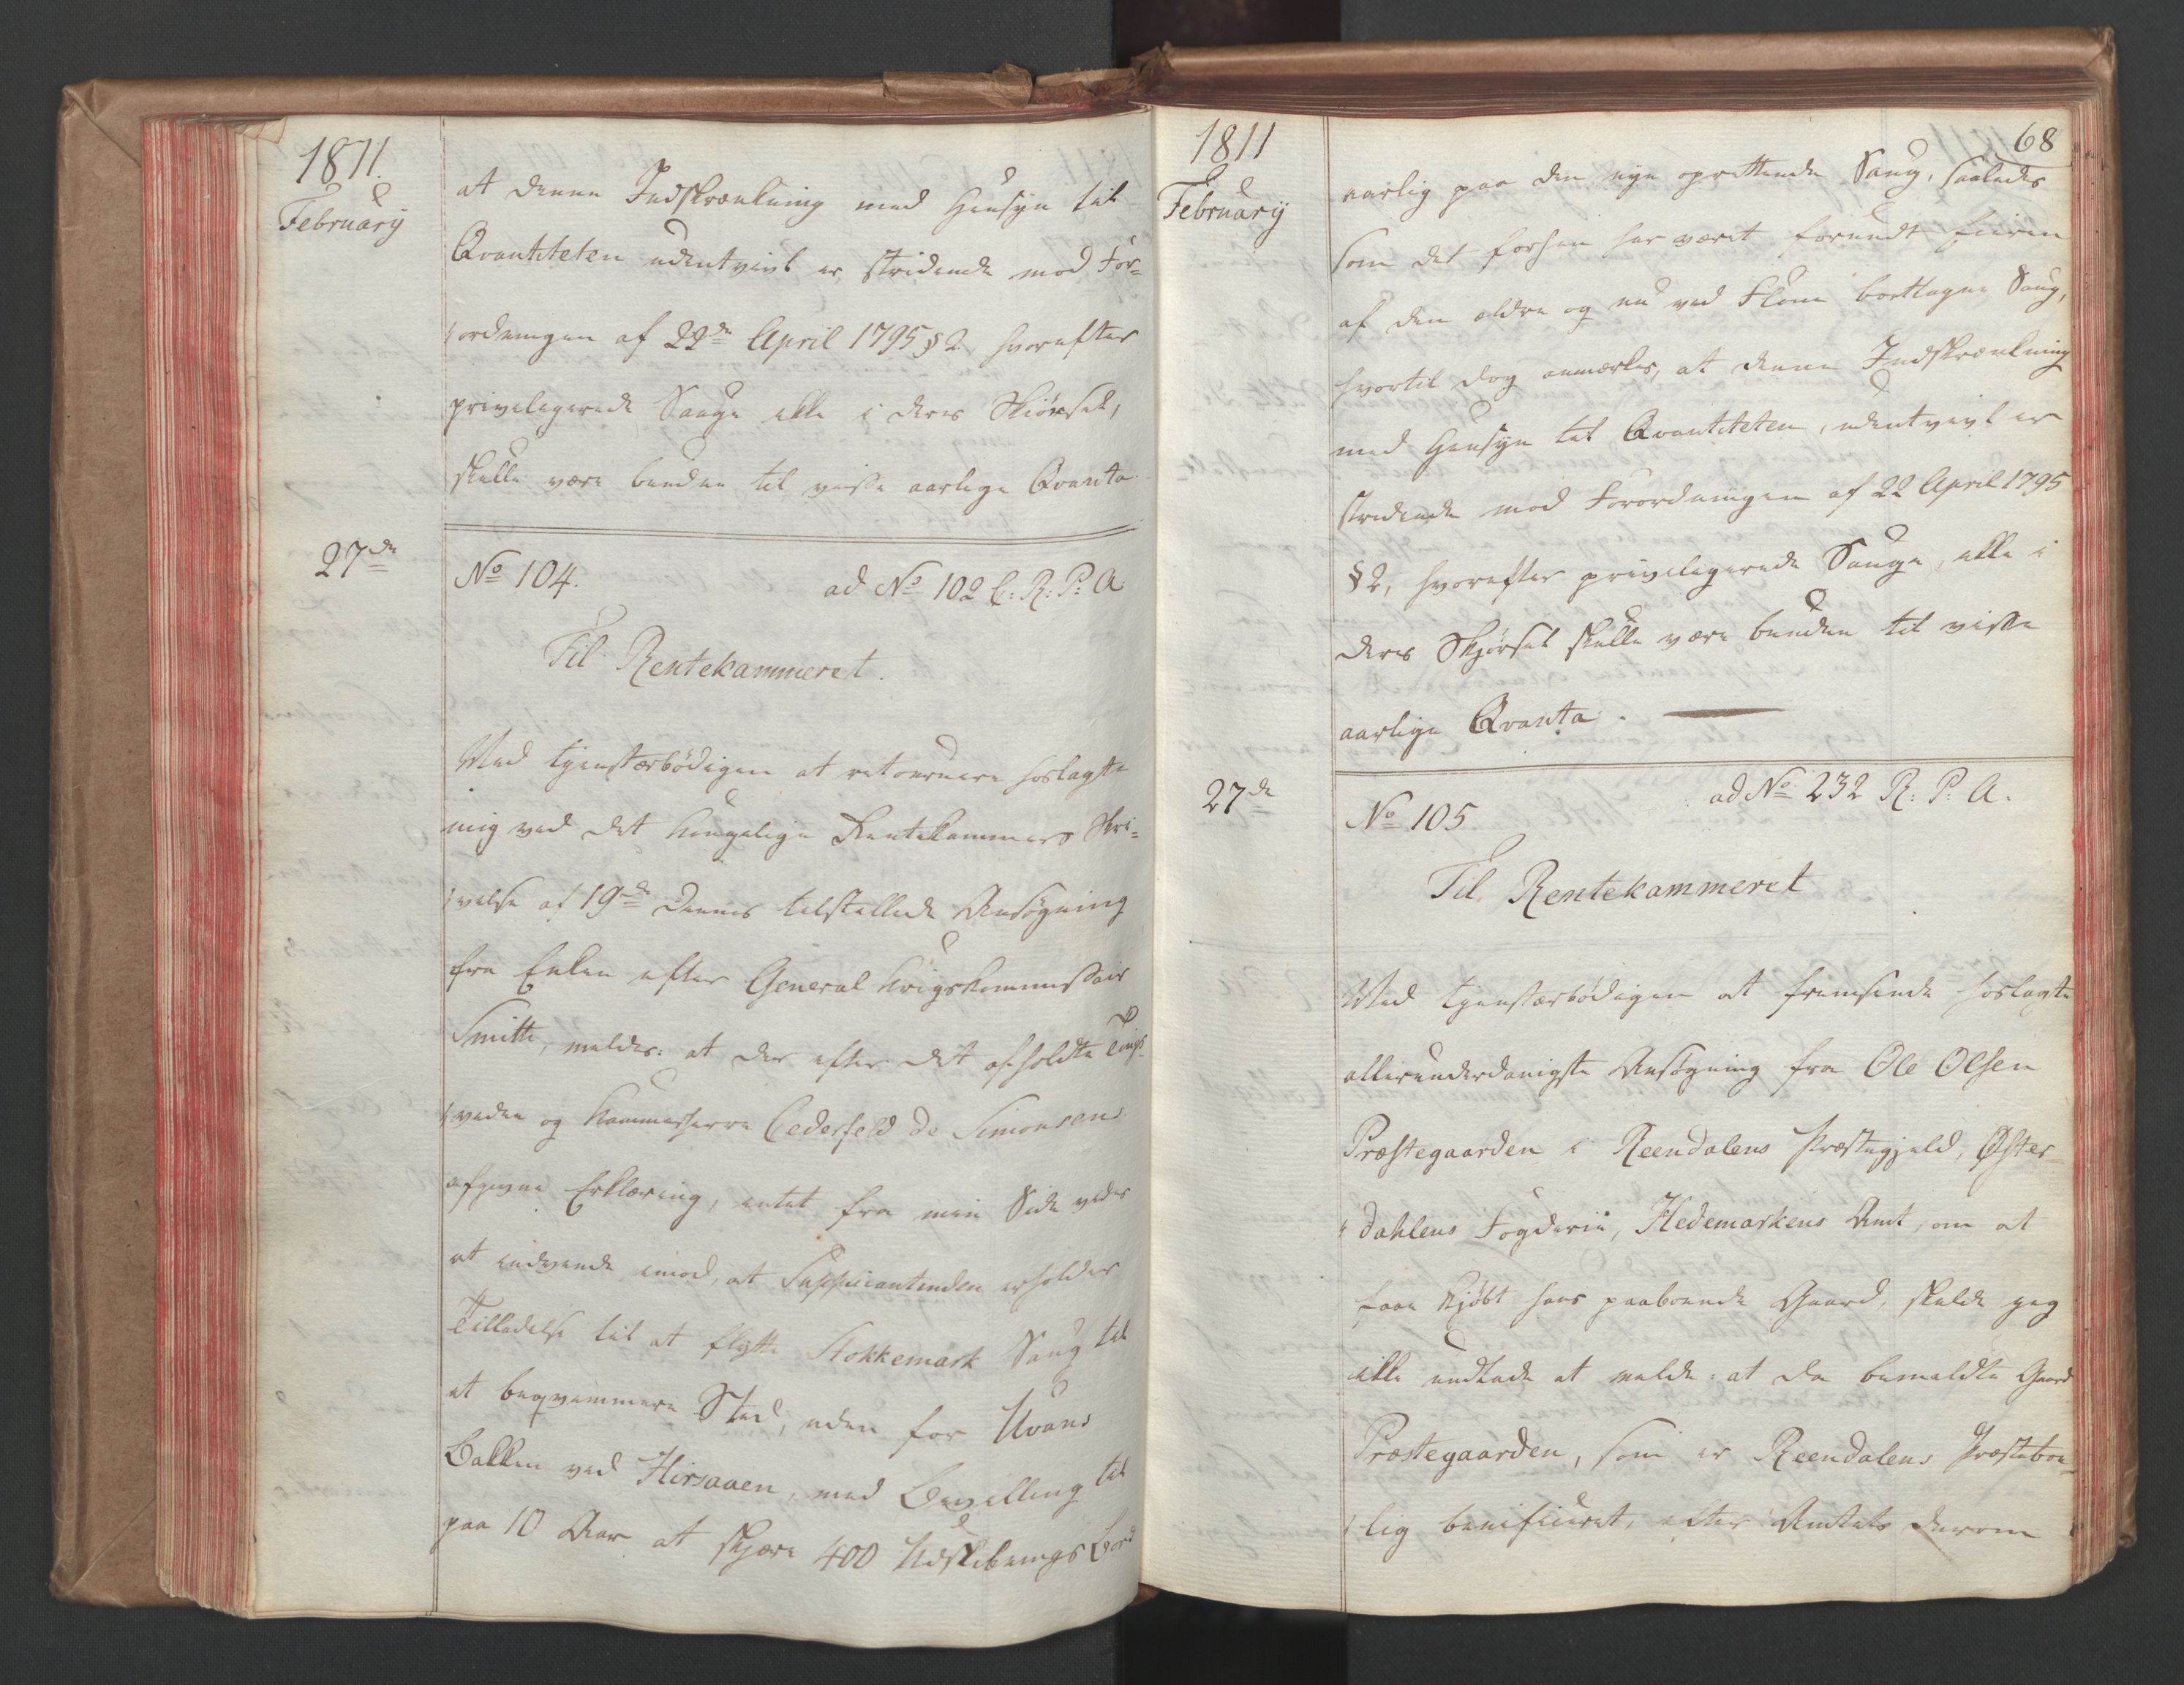 1811.
February
at denne Indskrænkning med Hensyn til
Qvantiteten udentvivl er stridende mod For-
ordningen af 22de April 1795 § 2 hvorefter
privilegerede Sauge ikke i deres Skiørsel,
skulle være bunden til visse aarlige Qvanta
27de
No 104.
ad No 102 C: R: P: A
Til Rentekammeret.
Ved tjenstærbødigen at retournere hoslagte
mig ved det kongelige Rentekammers Skri-
velse af 19de dennes tilstillede Ansøgning
fra Enken efter General Krigskommissair
Smitte, meldes: at der efter det afholdte Tings
vidne og Kammerherre Cederfeld de Simonsens
afgivne Erklæring, intet fra min Side vides
at indvende imod, at Supplicantinden erholder
Tilladelse til at flytte Stokkemark Saug til
et beqvemmere Sted, uden for Uvans
Bakken ved Hirsaaen, med Bevilling til
paa 10 Aar at skjære 400 Udskibnings Bord
1811
February
68
aarlig paa den nye oprettende Saug, saaledes
som det forhen har været forundt Eieren
af den ældre og nu ved Flom borttagne Saug,
hvortil dog anmærkes, at denne Indskrænkning
med Hensyn til Qvantiteten, udentvivl er
stridende mod Forordningen af 22 April 1795
§ 2, hvorefter privilegerede Sauge, ikke i
deres Skjørsel skulle være bunden til visse
aarlige Qvanta.
27de
No 105
ad No 232 R: P: A.
Til Rentekammeret
Ved tjenstærbødigen at fremsende hoslagte
allerunderdanigste Ansøgning fra Ole Olsen
Præstegaarden i Reendalens Præstegjæld, Øster
dahlens Fogderie, Hedemarkens Amt, om at
faae kjøbt hans paaboende Gaard, skulde jeg
ikke undlade at melde: at da bemeldte Gaard
Præstegaarden, som er Reendalens Præstebo-
lig benificeret, efter Amtets derom